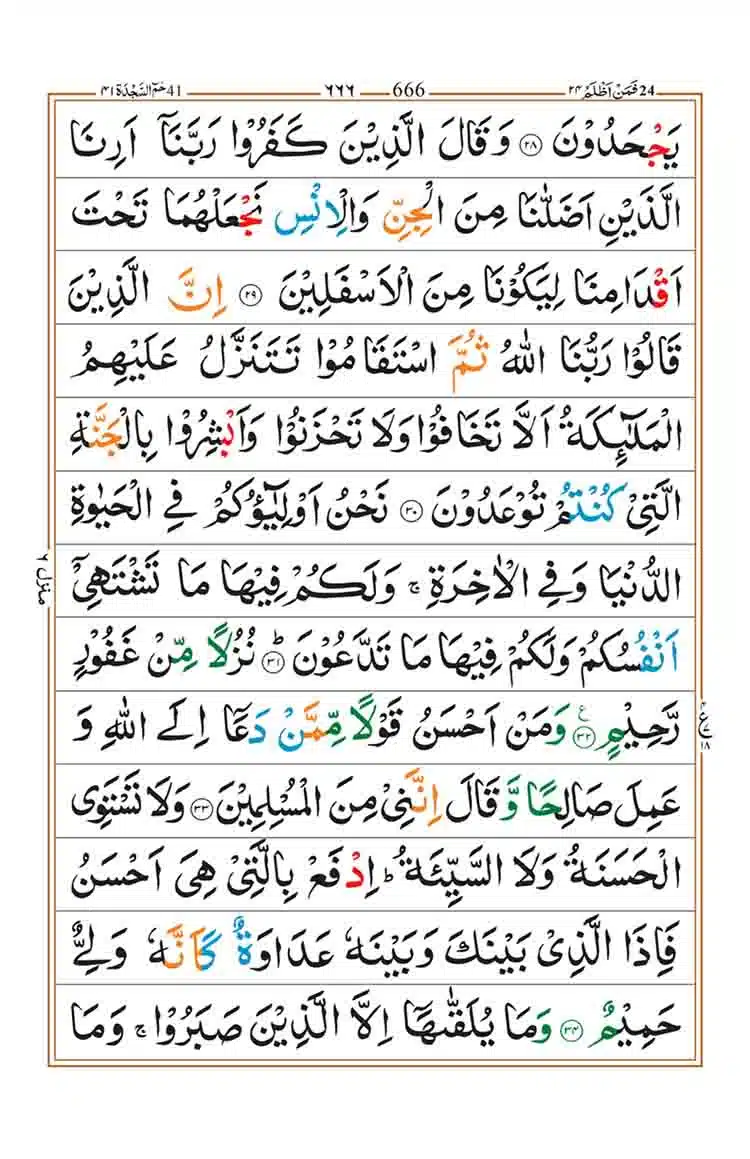 حٰمٓ السَّجْدَة ٤١ 41 ٦٦٦ 666 فَمَنْ اَظْلَمُ ٢٤ 24
يَجْحَدُوْنَ ۝٢٨ وَ قَالَ الَّذِيْنَ كَفَرُوْا رَبَّنَاۤ اَرِنَا
الَّذَيْنِ اَضَلّٰنَا مِنَ الْجِنِّ وَالْاِنْسِ نَجْعَلْهُمَا تَحْتَ
اَقْدَامِنَا لِيَكُوْنَا مِنَ الْاَسْفَلِيْنَ ۝٢٩ اِنَّ الَّذِيْنَ
قَالُوْا رَبُّنَا اللّٰهُ ثُمَّ اسْتَقَامُوْا تَتَنَزَّلُ عَلَيْهِمُ
الْمَلٰٓئِكَةُ اَلَّا تَخَافُوْا وَلَا تَحْزَنُوْا وَاَبْشِرُوْا بِالْجَنَّةِ
الَّتِيْ كُنْتُمْ تُوْعَدُوْنَ ۝٣٠ نَحْنُ اَوْلِيٰٓؤُكُمْ فِي الْحَيٰوةِ
الدُّنْيَا وَفِي الْاٰخِرَةِ ۚ وَلَكُمْ فِيْهَا مَا تَشْتَهِيْۤ
اَنْفُسُكُمْ وَلَكُمْ فِيْهَا مَا تَدَّعُوْنَ ؕ ۝٣١ نُزُلًا مِّنْ غَفُوْرٍ
رَّحِيْمٍ ۝٣٢ ع وَمَنْ اَحْسَنُ قَوْلًا مِّمَّنْ دَعَاۤ اِلَى اللّٰهِ وَ
عَمِلَ صَالِحًا وَّ قَالَ اِنَّنِيْ مِنَ الْمُسْلِمِيْنَ ۝٣٣ وَلَا تَسْتَوِى
الْحَسَنَةُ وَلَا السَّيِّئَةُ ؕ اِدْفَعْ بِالَّتِيْ هِيَ اَحْسَنُ
فَاِذَا الَّذِيْ بَيْنَكَ وَبَيْنَهٗ عَدَاوَةٌ كَاَنَّهٗ وَلِيٌّ
حَمِيْمٌ ۝٣٤ وَمَا يُلَقّٰىهَاۤ اِلَّا الَّذِيْنَ صَبَرُوْا ۚ وَمَا
منزل ٦